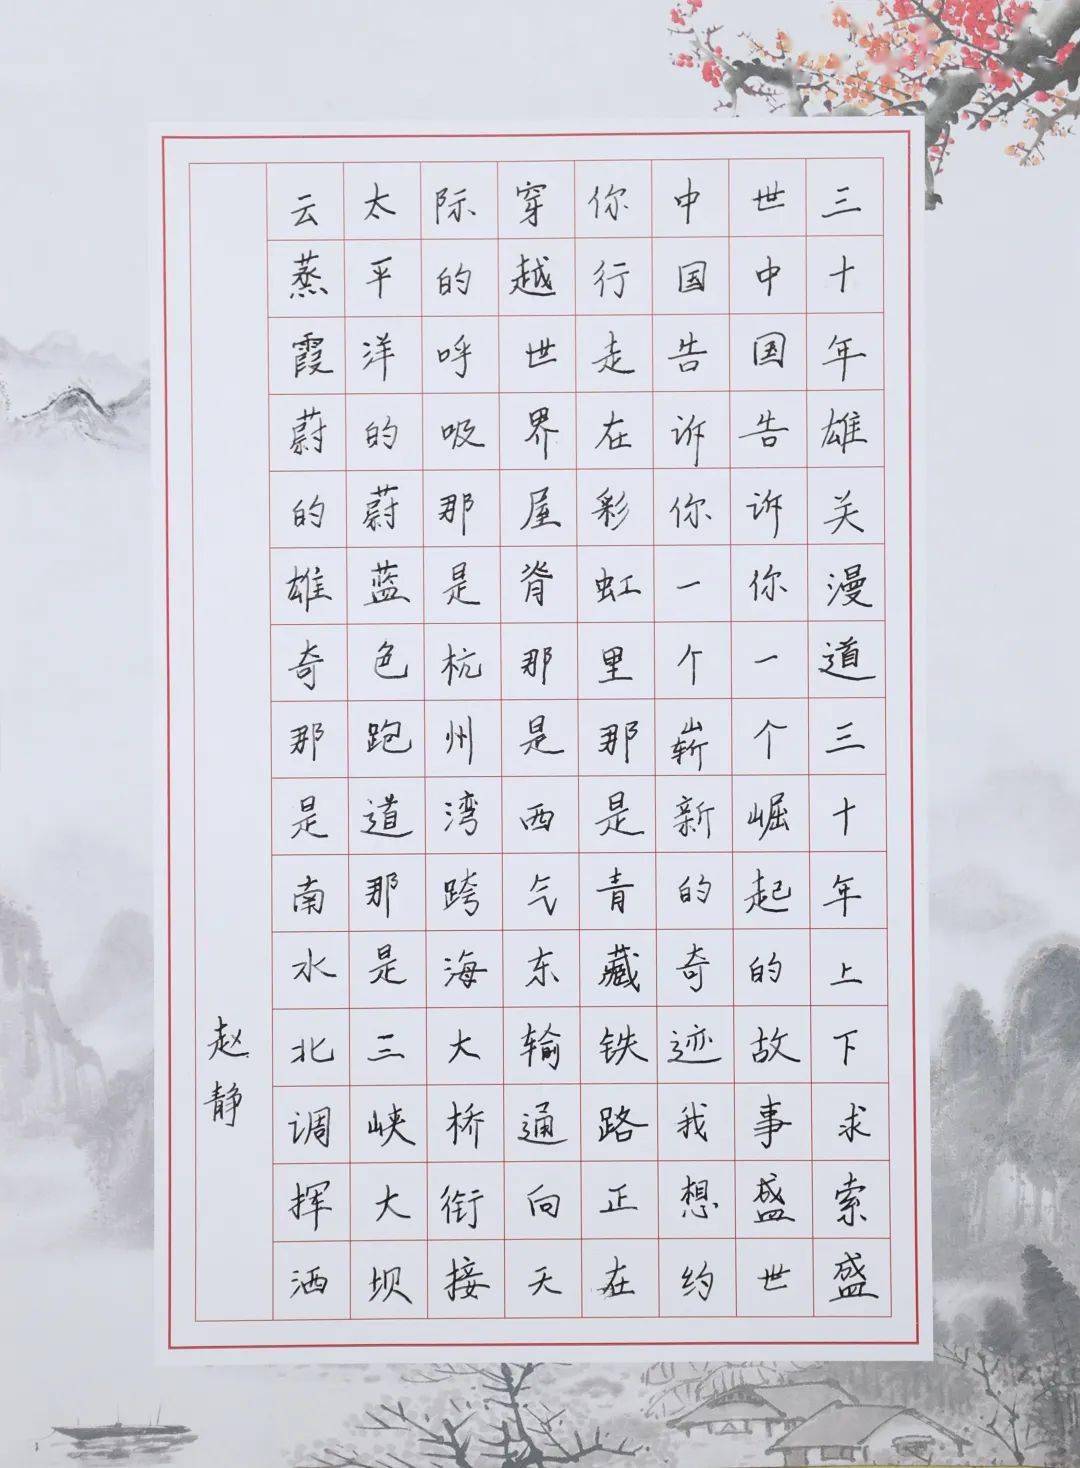 三十年雄关漫道三十年上下求索盛
世中国告诉你一个崛起的故事盛世
中国告诉你一个崭新的奇迹我想约
你行走在彩虹里那是青藏铁路正在
穿越世界屋脊那是西气东输通向天
际的呼吸那是杭州湾跨海大桥衔接
太平洋的蔚蓝色跑道那是三峡大坝
云蒸霞蔚的雄奇那是南水北调挥洒
赵静